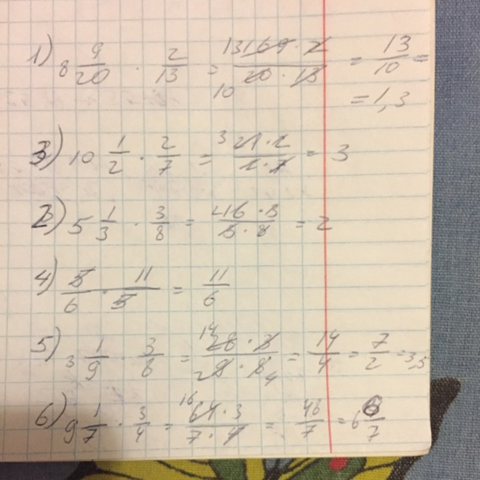 1) 8 9/20 · 2/13 = 13 169 · 2 / 10 20 · 13 = 13/10 =
= 1,3
3) 10 1/2 · 2/7 = 3 21 · 2 / 2 · 7 = 3
2) 5 1/3 · 3/8 = 16 · 3 / 3 · 8 = 2
4) 5/6 · 11/5 = 11/6
5) 3 1/9 · 3/6 = 14 28 · 3 / 9 · 6 = 14/4 = 7/2 = 3,5
6) 9 1/7 · 3/4 = 16 64 · 3 / 7 · 4 = 48/7 = 6 6/7